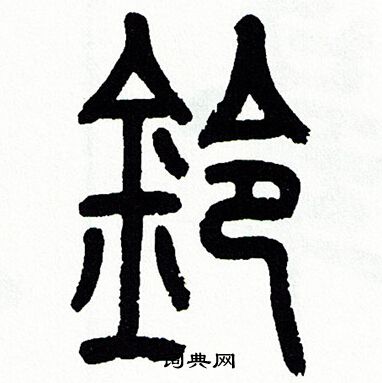 鈴
词典网